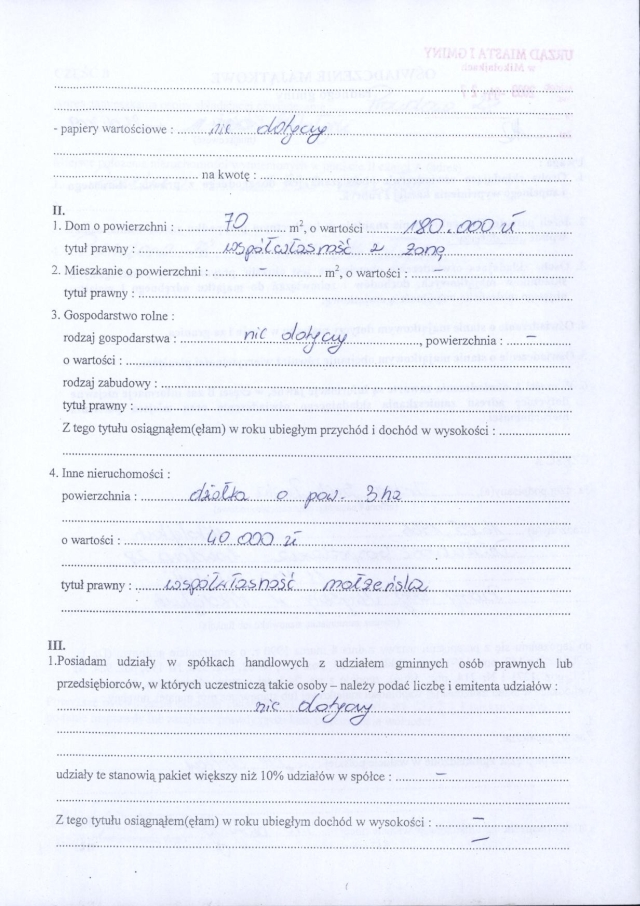 - papiery wartościowe : nie dotyczy
na kwotę :
II.
1. Dom o powierzchni : 70 m², o wartości 180.000 zł
tytuł prawny : współwłasność z żoną
2. Mieszkanie o powierzchni : - m², o wartości : -
tytuł prawny :
3. Gospodarstwo rolne :
rodzaj gospodarstwa : nie dotyczy, powierzchnia : -
o wartości :
rodzaj zabudowy :
tytuł prawny :
Z tego tytułu osiągnąłem(ęłam) w roku ubiegłym przychód i dochód w wysokości :
4. Inne nieruchomości :
powierzchnia : działka o pow. 3 ha
o wartości : 40 000 zł
tytuł prawny : współwłasność małżeńska
III.
1.Posiadam udziały w spółkach handlowych z udziałem gminnych osób prawnych lub
przedsiębiorców, w których uczestniczą takie osoby – należy podać liczbę i emitenta udziałów :
nie dotyczy
udziały te stanowią pakiet większy niż 10% udziałów w spółce : -
Z tego tytułu osiągnąłem(ęłam) w roku ubiegłym dochód w wysokości : -
-